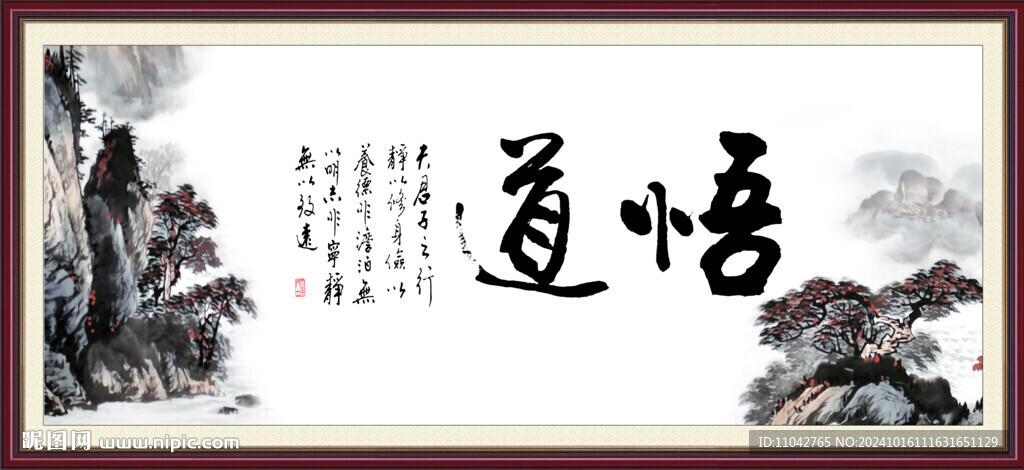 悟道
夫君子之行
靜以修身儉以
養德非澹泊無
以明志非寧靜
無以致遠
昵图网 www.nipic.com
ID:11042765 NO:20241016111631651129